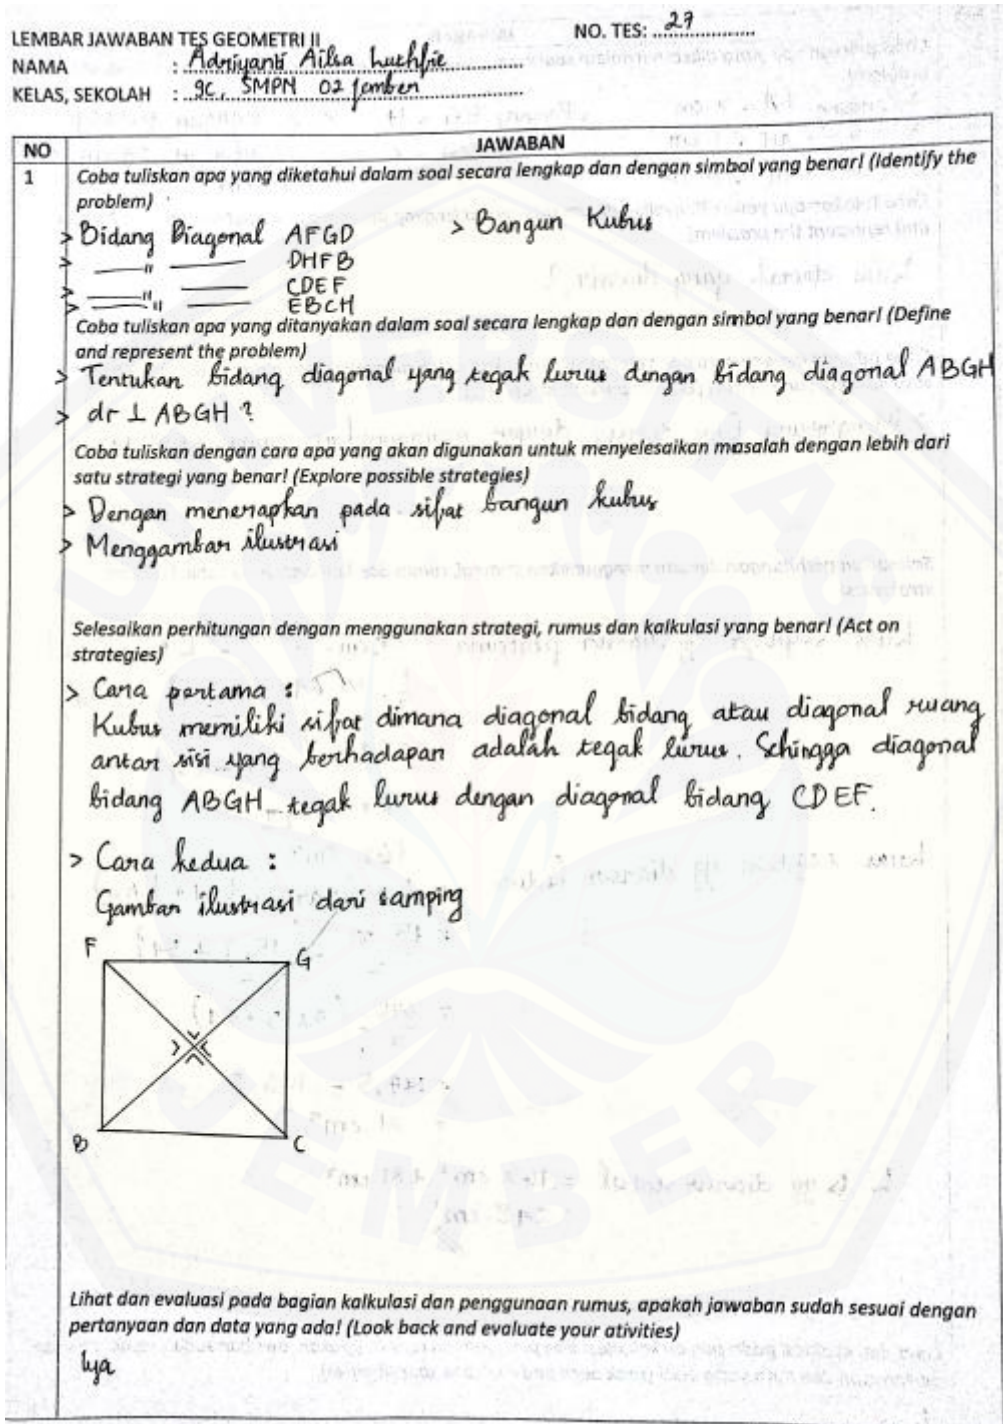 LEMBAR JAWABAN TES GEOMETRI II
NO. TES: 27
NAMA : Adriyanti Ailsa Luthfie
KELAS, SEKOLAH : 9C, SMPN 02 Jember
NO JAWABAN
1 Coba tuliskan apa yang diketahui dalam soal secara lengkap dan dengan simbol yang benar! (Identify the
problem)
> Bidang Diagonal AFGD > Bangun Kubus
> —"— DHFB
> —"— CDEF
> —"— EBCH
Coba tuliskan apa yang ditanyakan dalam soal secara lengkap dan dengan simbol yang benar! (Define
and represent the problem)
> Tentukan bidang diagonal yang tegak lurus dengan bidang diagonal ABGH
> dr ⊥ ABGH ?
Coba tuliskan dengan cara apa yang akan digunakan untuk menyelesaikan masalah dengan lebih dari
satu strategi yang benar! (Explore possible strategies)
> Dengan menerapkan pada sifat bangun kubus
> Menggambar ilustrasi
Selesaikan perhitungan dengan menggunakan strategi, rumus dan kalkulasi yang benar! (Act on
strategies)
> Cara pertama :
Kubus memiliki sifat dimana diagonal bidang atau diagonal ruang
antar sisi yang berhadapan adalah tegak lurus. Sehingga diagonal
bidang ABGH tegak lurus dengan diagonal bidang CDEF.
> Cara kedua :
Gambar ilustrasi dari samping
F G
B C
Lihat dan evaluasi pada bagian kalkulasi dan penggunaan rumus, apakah jawaban sudah sesuai dengan
pertanyaan dan data yang ada! (Look back and evaluate your ativities)
Iya